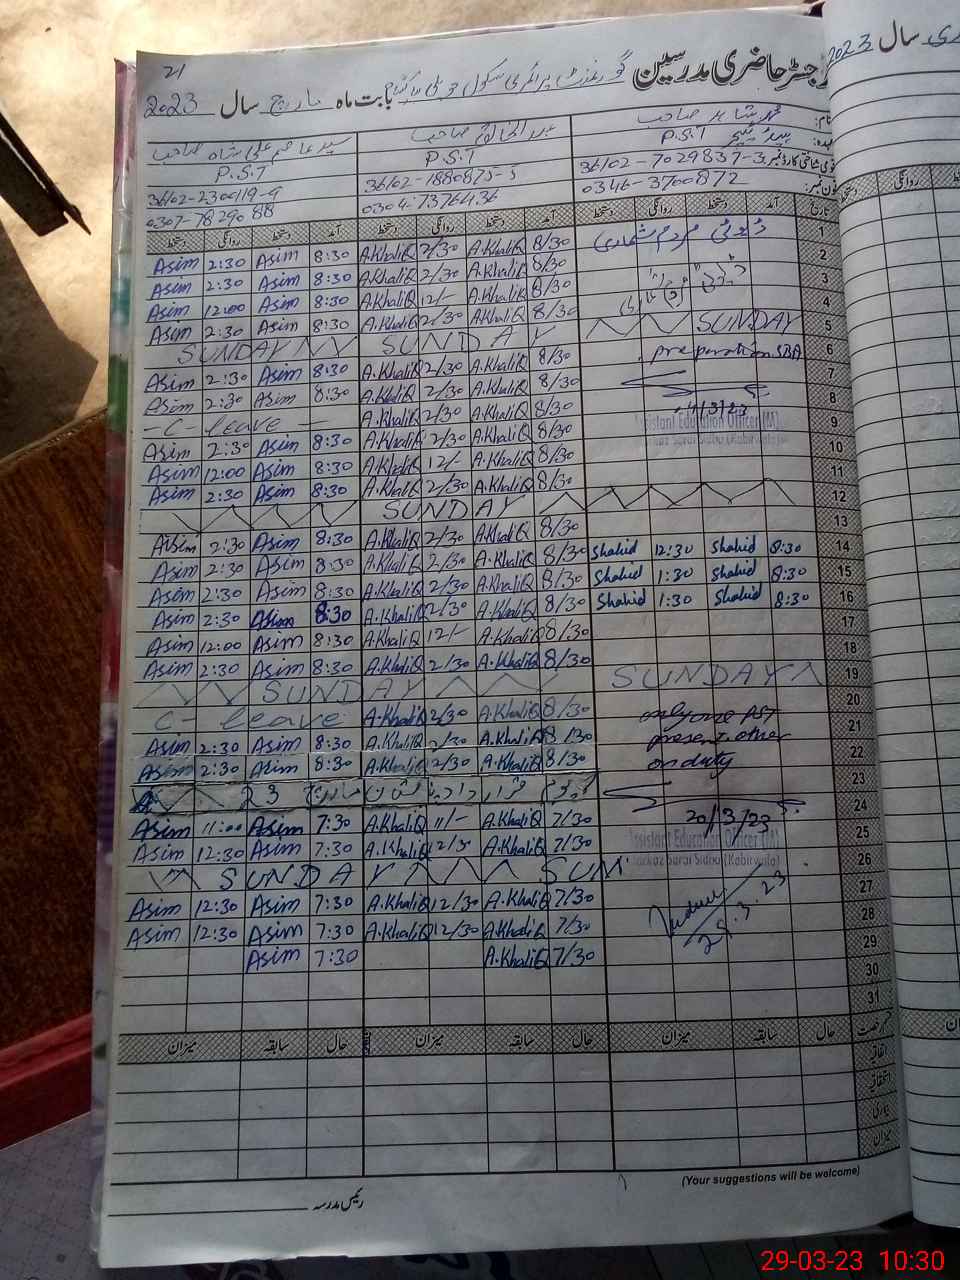 21
رجسٹر حاضری مدرسین گورنمنٹ پرائمری سکول بابت ماہ مارچ سال 2023
سال 2023
شاہد صاحب
P.S.T
P.S.T
P.S.T
36102-7029837-3
36102-1880875-5
36102-2300119-9
0346-3700872
0304-7376436
0307-7829088
تاریخ آمد دستخط روانگی دستخط آمد دستخط روانگی دستخط آمد دستخط روانگی دستخط
1 ڈیوٹی مردم شماری
Asim 2:30 Asim 8:30 A.KhaliQ 2/30 A.KhaliQ 8/30 2
Asim 2:30 Asim 8:30 A.KhaliQ 2/30 A.KhaliQ 8/30 3
Asim 12:00 Asim 8:30 A.KhaliQ 12/- A.KhaliQ 8/30 4
Asim 2:30 Asim 8:30 A.KhaliQ 2/30 A.KhaliQ 8/30 5
SUNDAY SUNDAY SUNDAY 6
Asim 2:30 Asim 8:30 A.KhaliQ 2/30 A.KhaliQ 8/30 preparation SBA 7
Asim 2:30 Asim 8:30 A.KhaliQ 2/30 A.KhaliQ 8/30 8
-C- leave - A.KhaliQ 2/30 A.KhaliQ 8/30 /3/23 9
Assistant Education Officer (M)
Markaz Sarai Sidhu (Kabirwala)
Asim 2:30 Asim 8:30 A.KhaliQ 2/30 A.KhaliQ 8/30 10
Asim 12:00 Asim 8:30 A.KhaliQ 12/- A.KhaliQ 8/30 11
Asim 2:30 Asim 8:30 A.KhaliQ 2/30 A.KhaliQ 8/30 12
SUNDAY 13
Asim 2:30 Asim 8:30 A.KhaliQ 2/30 A.KhaliQ 8/30 14
Asim 2:30 Asim 8:30 A.KhaliQ 2/30 A.KhaliQ 8/30 Shahid 12:30 Shahid 8:30 15
Asim 2:30 Asim 8:30 A.KhaliQ 2/30 A.KhaliQ 8/30 Shahid 1:30 Shahid 8:30 16
Asim 2:30 Asim 8:30 A.KhaliQ 2/30 A.KhaliQ 8/30 Shahid 1:30 Shahid 8:30 17
Asim 12:00 Asim 8:30 A.KhaliQ 12/- A.KhaliQ 8/30 18
Asim 2:30 Asim 8:30 A.KhaliQ 2/30 A.KhaliQ 8/30 19
SUNDAY SUNDAY 20
C- leave A.KhaliQ 2/30 A.KhaliQ 8/30 only one PST 21
Asim 2:30 Asim 8:30 A.KhaliQ 2/30 A.KhaliQ 8/30 present other 22
Asim 2:30 Asim 8:30 A.KhaliQ 2/30 A.KhaliQ 8/30 on duty 23
یوم قرارداد پاکستان 23 مارچ 24
Asim 11:00 Asim 7:30 A.KhaliQ 11/- A.KhaliQ 7/30 20/3/23 25
Assistant Education Officer (M)
Markaz Sarai Sidhu (Kabirwala)
Asim 12:30 Asim 7:30 A.KhaliQ 12/30 A.KhaliQ 7/30 26
SUNDAY SUN 27
Asim 12:30 Asim 7:30 A.KhaliQ 12/30 A.KhaliQ 7/30 28
Asim 12:30 Asim 7:30 A.KhaliQ 12/30 A.KhaliQ 7/30 29.3.23 29
Asim 7:30 A.KhaliQ 7/30 30
31
رخصت حال سابقہ میزان حال سابقہ میزان حال سابقہ میزان
اتفاقیہ
استحقاقیہ
بیماری
میزان
(Your suggestions will be welcome)
رئیس مدرسہ
29-03-23 10:30